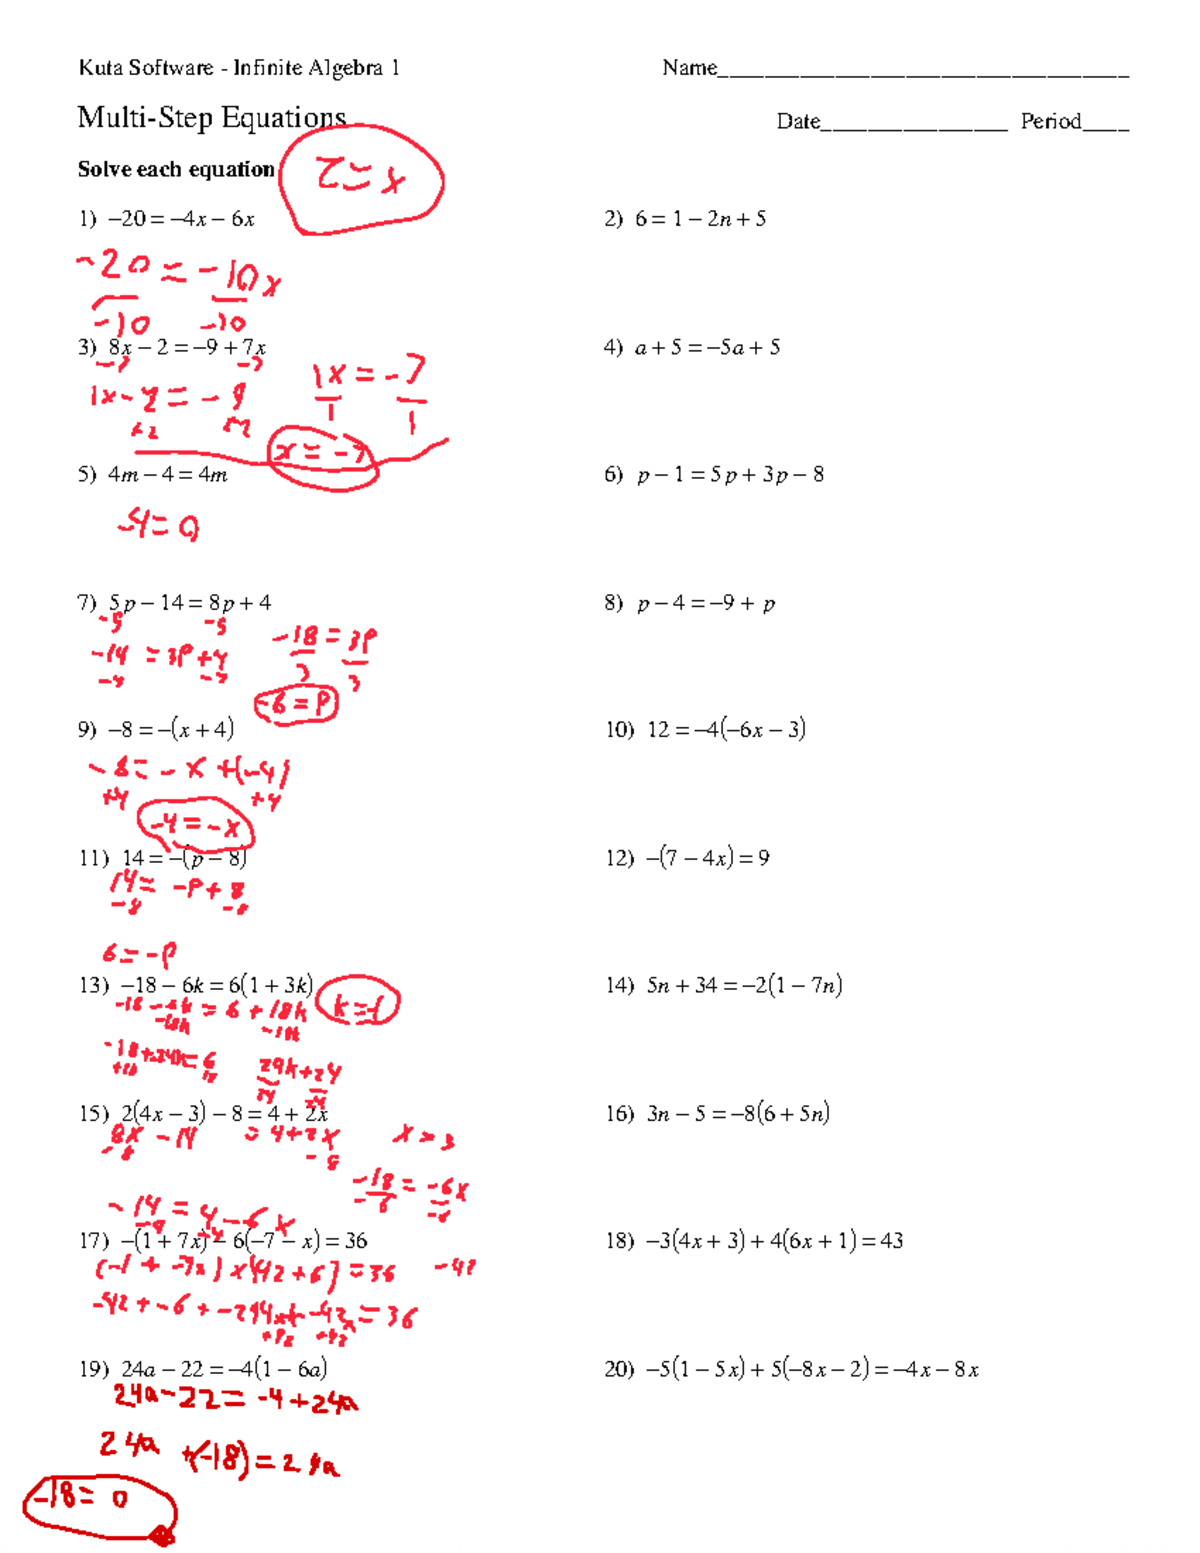 Kuta Software - Infinite Algebra 1 Name
Multi-Step Equations Date Period
Solve each equation
2=x
1) −20 = −4x − 6x 2) 6 = 1 − 2n + 5
-20 = -10x
-10 -10
3) 8x − 2 = −9 + 7x 4) a + 5 = −5a + 5
-7 -7
1x - 2 = -9 1x = -7
+2 1 1
x = -7
5) 4m − 4 = 4m 6) p − 1 = 5p + 3p − 8
-4 = 0
7) 5p − 14 = 8p + 4 8) p − 4 = −9 + p
-5 -5
-14 = 3P + 4 -18 = 3P
-4 3 3
-6 = P
9) −8 = −(x + 4) 10) 12 = −4(−6x − 3)
-8 = -x +(-4)
+4 +4
-4 = -x
11) 14 = −(p − 8) 12) −(7 − 4x) = 9
14 = -P + 8
-8 -8
6 = -P
13) −18 − 6k = 6(1 + 3k) 14) 5n + 34 = −2(1 − 7n)
-18 -6k = 6 + 18k k = -1
-18k -18k
15) 2(4x − 3) − 8 = 4 + 2x 16) 3n − 5 = −8(6 + 5n)
8x - 14 = 4 + 2x x = 3
-8 -8
-18 = -6x
-14 = 4 - 6x
17) −(1 + 7x) − 6(−7 − x) = 36 18) −3(4x + 3) + 4(6x + 1) = 43
(-1 + -7x) x (42 + 6) = 36 -42
= 36
19) 24a − 22 = −4(1 − 6a) 20) −5(1 − 5x) + 5(−8x − 2) = −4x − 8x
24a - 22 = -4 + 24a
24a +(-18) = 24a
-18 = 0